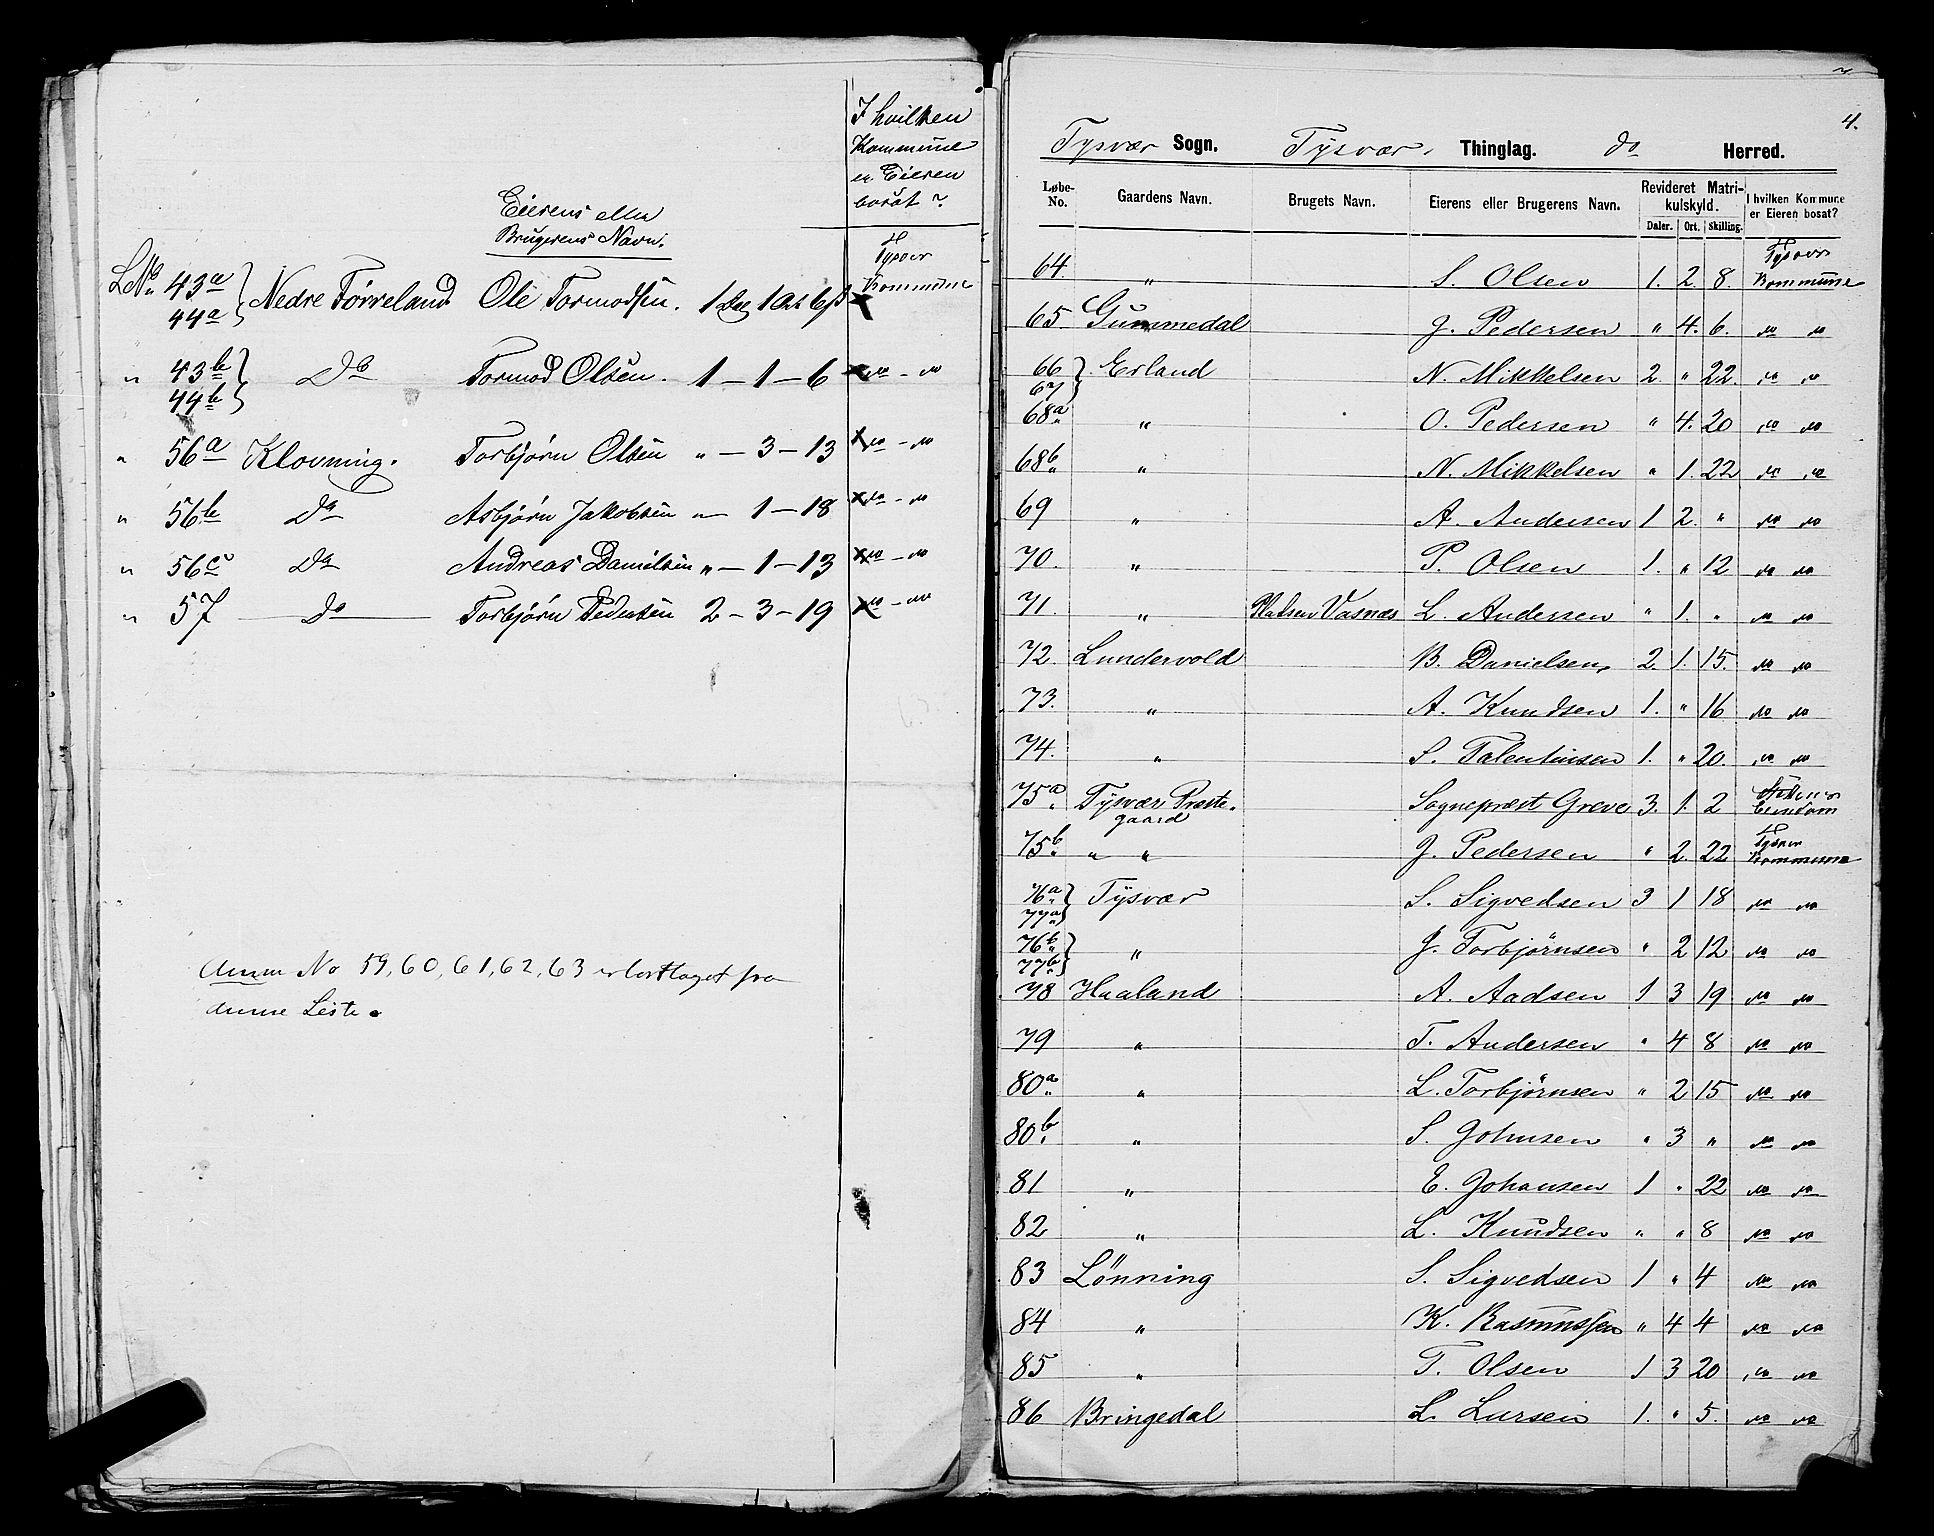 I hvilken
Kommune
er Eieren
bosat?
Eierens eller
Brugerens Navn.
Tysvær
Kommune
LNo 43a 44a } Nedre Førreland Ole Tormodsen. 1 Dlr 1 Ort 6 ß
" 43b 44b } Do Tormod Olsen. 1 — 1 — 6 do - do
" 56a Klovning. Torbjørn Olsen " — 3 — 13 do - do
" 56b Do Asbjørn Jakobsen " — 1 — 18 do - do
" 56c Do Andreas Danielsen " — 1 — 13 do - do
" 57 — do — Torbjørn Pedersen 2 — 3 — 19 do - do
Anm No 59, 60, 61, 62, 63 er borttaget fra
denne Liste.
4.
Tysvær Sogn. Tysvær, Thinglag. do Herred.
Løbe-No. Gaardens Navn. Brugets Navn. Eierens eller Brugerens Navn. Revideret Matrikulskyld. I hvilken Kommune er Eieren bosat?
Daler. Ort. Skilling.
64. " S. Olsen 1. 2. 8. Tysvær Kommune
65 Gummedal J. Pedersen " 4. 6. do do
66 67 } Erland N. Mikkelsen 2. " 22. do do
68a " O. Pedersen " 4. 20 do do
68b " N. Mikkelsen " 1. 22 do do
69 " A. Andersen 1 2. " do do
70. " P. Olsen 1. " 12 do do
71. " Pladsen Vasnæs L. Andersen " 1. " do do
72. Lundervold B. Danielsen, 2. 1. 15. do do
73. " A. Knudsen 1. " 16 do do
74. " S. Talentinsen 1. " 20. do do
75a Tysvær Præste- gaard Sognepræst Greve 3. 1. 2 Eiendom
75b " " J. Pedersen " 2. 22 Tysvær Kommune
76a 77a } Tysvær S. Sigvedsen 3 1 18 do do
76b 77b } " J. Torbjørnsen " 2 12 do do
78 Haaland A. Aadsen 1 3 19 do do
79 " T. Andersen " 4 8 do do
80a " L. Torbjørnsen " 2 15 do do
80b " S. Johnsen " 3 " do do
81 " E. Johansen 1 " 22 do do
82 " L. Knudsen " " 8 do do
83 Lønning S. Sigvedsen 1 " 4 do do
84 " K. Rasmussen " 4 4 do do
85 " T. Olsen 1 3 20 do do
86 Bringedal L. Larsen 1. " 5. do do